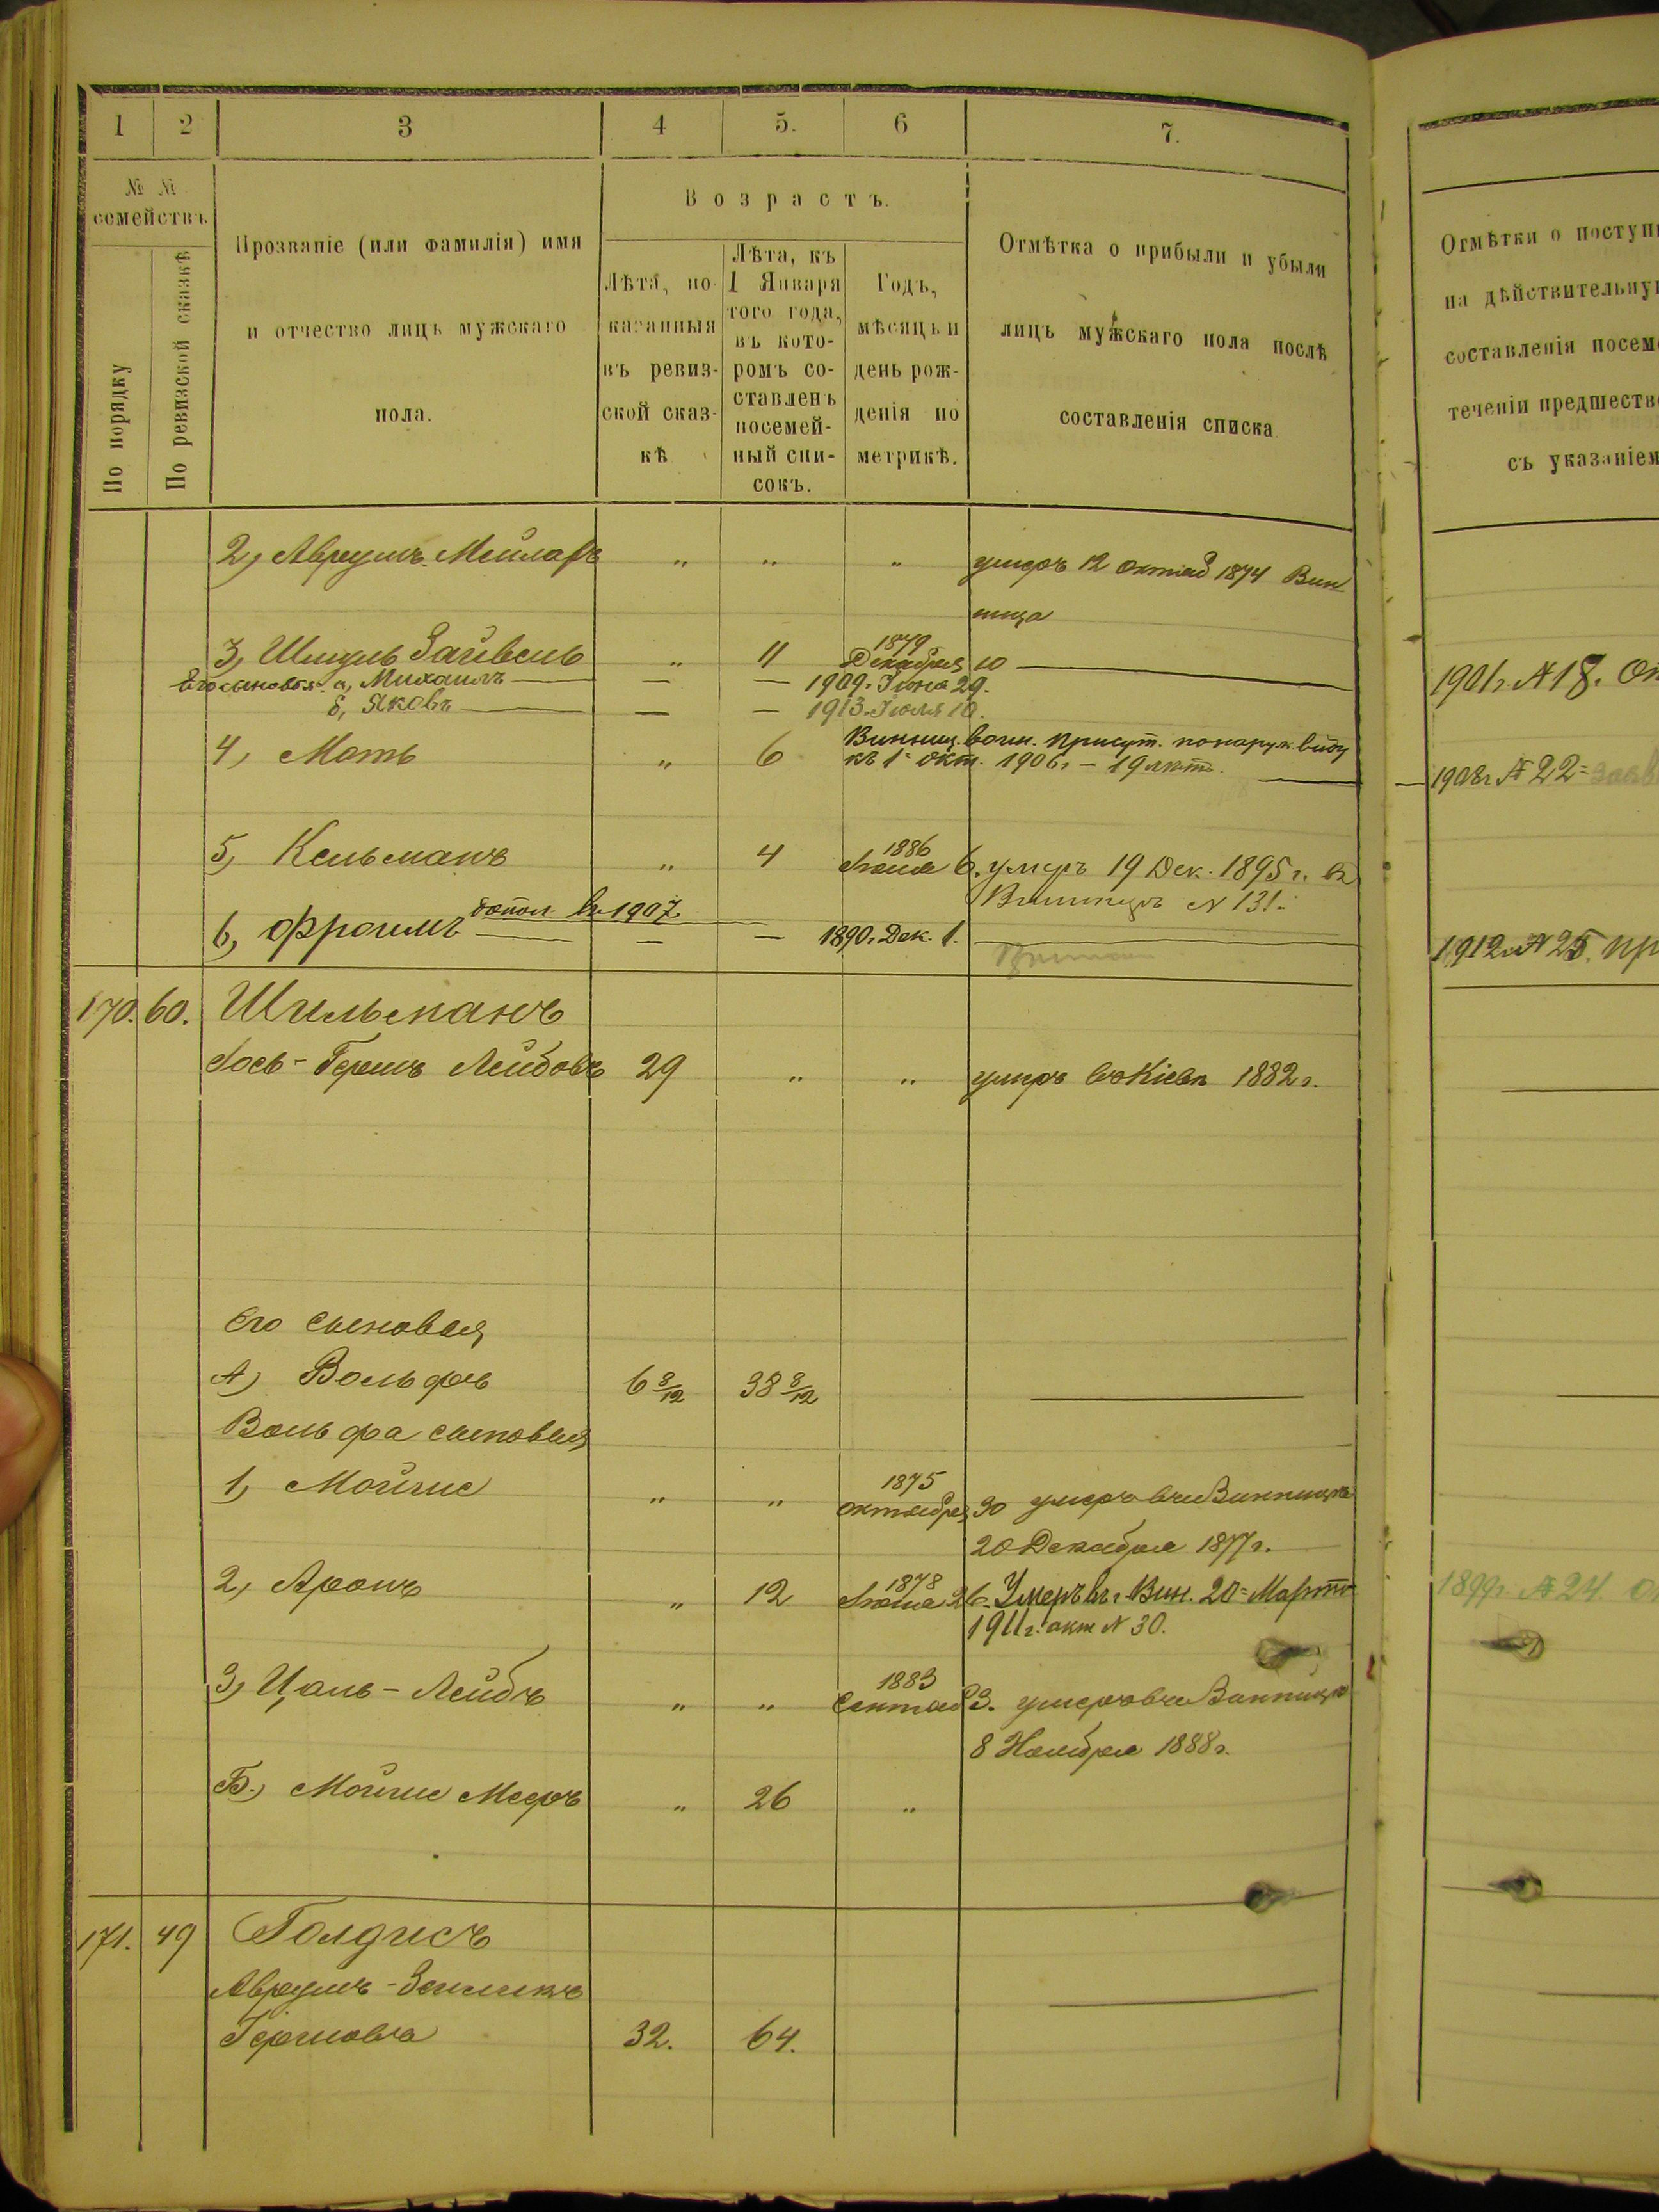 1 2 3 4 5. 6 7.
№ №
семействъ
По порядку
По ревизской сказкѣ
Прозваніе (или фамилія) имя
и отчество лицъ мужскаго
пола.
Возрастъ.
Лѣта, по-
казанныя
въ ревиз-
ской сказ-
кѣ
Лѣта, къ
1 Января
того года,
въ кото-
ромъ со-
ставленъ
посемей-
ный спи-
сокъ.
Годъ,
мѣсяцъ и
день рож-
денія по
метрикѣ.
Отмѣтка о прибыли и убыли
лицъ мужскаго пола послѣ
составленія списка
Отмѣтки о поступ
на дѣйствительну
составленія посем
теченіи предшеств
съ указаніем
2, Аврумъ Мейлахъ „ „ „ умеръ 12 октяб 1874 Вин
ница
3, Шмуль Зайвель „ 11 1879
Декабря 10
Его сыновья: а, Михаилъ — — 1909 г. Іюня 29.
б, Яковъ — — 1913. Іюля 10.
1901 г. № 18. От
4, Моть „ 6 Винниц. воин. присут. по наруж. виду
къ 1 окт. 1906 г. – 19 лѣтъ.
1908 г. № 22 =
5, Кельманъ „ 4 1886
Іюля 6. умеръ 19 Дек. 1895 г. въ
Винницѣ N 131.
6, Фроимъ допол. въ 1907. — — 1890 г. Дек. 1.
1912 г. № 25. пр
170. 60. Шильманъ
Іось-Гершъ Лейбовъ 29 „ „ умеръ въ Кіевѣ 1882 г.
Его сыновья
А) Вольфъ 6 8/12 38 8/12
Вольфа сыновья
1, Мойше „ „ 1875
октября 30 умеръ въ Винницѣ
20 Декабря 1877 г.
2, Аронъ „ 12 1878
Іюля 26. Умеръ въ г. Вин. 20 = Марта
1911 г. акт N 30.
1899 г. № 24. о
3, Цаль-Лейбъ „ „ 1883
Сентяб 3. умеръ въ Винницѣ
8 Ноября 1888 г.
Б.) Мойше Мееръ „ 26 „
171. 49 Голдисъ
Аврумъ-Зейликъ
Гершовъ 32. 64.